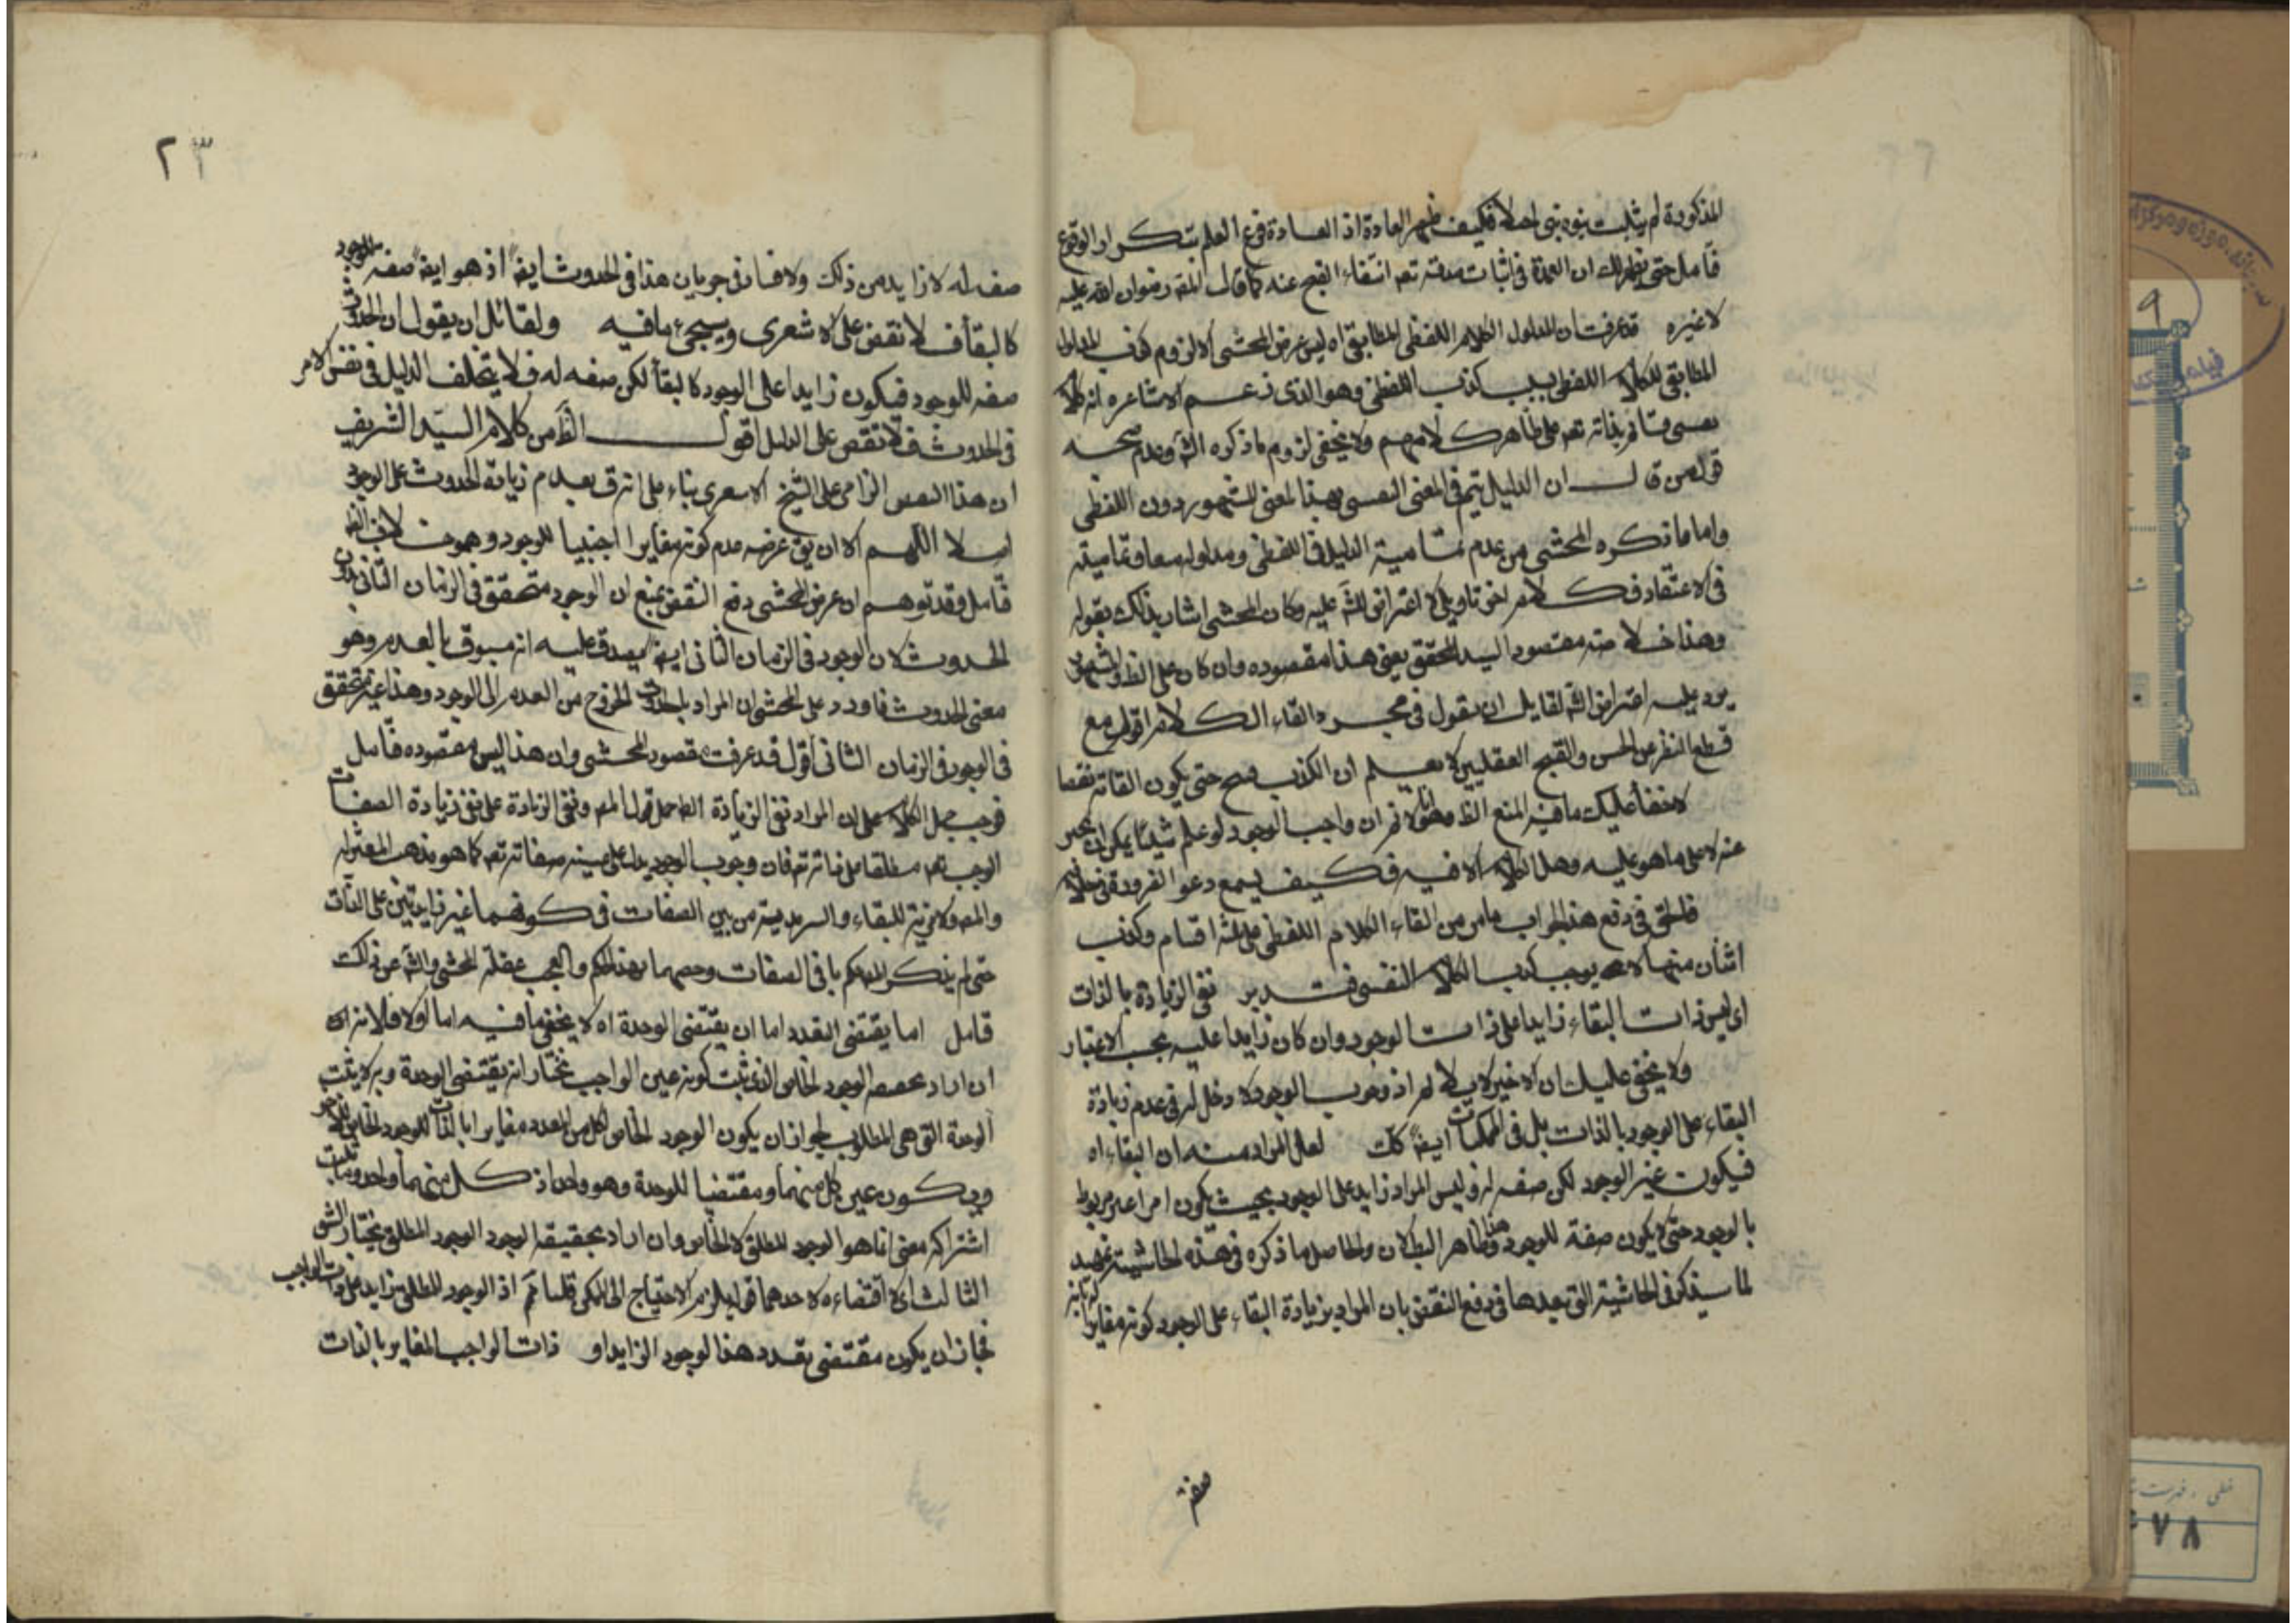 المذكورة لم يثبت نبوة نبى اصلا فكيف العادة اذ العادة فرع العلم بتكرار الوقوع
فتأمل حتى يظهر لك ان العمدة فى اثبات صدقه تعه انتفاء القبح عنه كما قال المصه رضوان الله عليه
لا غيره قد عرفت ان المدلول الكلام اللفظى المطابقى اه ليس غرض المحشى الا لزوم كذب المدلول
المطابقى للكلام اللفظى بسبب كذب اللفظى وهو الذى زعم الاشاعره انه كلام
نفسى قائم بذاته تعه على ظاهر كلامهم ولا يخفى لزوم ما ذكره الشه وعدم صحه
قول من قال ان الدليل يتم فى المعنى النفسى بهذا المعنى المشهور دون اللفظى
واما ما ذكره المحشى من عدم تمامية الدليل فى اللفظى ومدلوله معا وتماميته
فى الاعتقاد فكلام اخر تاويلى لا اعتراض للشه عليه وكان المحشى اشار بذلك بقوله
وهذا خلاصه مقصود السيد المحقق يعنى هذا مقصوده وان كان على الظ والمشهور
يرد عليه اعتراض الشه لقايل ان يقول فى مجرد القاء الكلام اقول مع
قطع النظر عن الحسن والقبح العقليين لا يعلم ان الكذب قبيح حتى يكون القائه نقصا
لا خفأ عليك ما فيه المنع الظ وهو انا لا نم ان واجب الوجود لو علم شيئا يمكن ان يخبر
عنه لا على ما هو عليه وهل الكلام الا فيه فكيف يسمع دعوا الضرورة فى خلافه
فالحق فى دفع هذا الجواب ما مر من القاء الكلام اللفظى على ثلثه اقسام وكذب
اثنان منها لا يوجب كذب الكلام النفسى فتدبر نفى الزيادة بالذات
اى ليس ذات البقاء زايدا على ذات الوجود وان كان زايدا عليه بحسب الاعتبار
ولا يخفى عليك ان الاخير لا له اذ وجوب الوجود لا دخل له فى عدم زيادة
البقاء على الوجود بالذات بل فى الممكنات ايضا كك لعل المراد منه ان البقاء اه
فيكون غير الوجود لكن صفه له وليس المراد زايد على الوجود بحيث يكون امرا غير مربوط
بالوجود حتى لا يكون صفة للوجود وهذا ظاهر البطلان والحاصل ما ذكره فى هذه الحاشية تمهيد
لما سيذكر فى الحاشية التى بعدها فى دفع النقض بان المراد بزيادة البقاء على الوجود كونه مغايرا
صفة
٢٣
صفه له لا زايد من ذلك ولا فساد فى جريان هذا فى الحدوث ايضا اذ هو ايضا صفه للوجود
كالبقأ فلا نقض على الاشعرى ويسجئ ما فيه ولقائل ان يقول ان الحدوث
صفه للوجود فيكون زايدا على الوجود كالبقأ لكن صفه له فلا يتخلف الدليل فى نفس الامر
فى الحدوث فلا نقض على الدليل اقول الظ من كلام السيد الشريف
ان هذا النقض الزامى على الشيخ الاشعرى بناء على انه ق بعدم زيادة الحدوث على الوجود
اصلا اللهم الا ان يق غرضه عدم كونه مغايرا اجنبيا للوجود وهو خلاف الظ
فتأمل وقد توهم ان غرض المحشى دفع النقض بمنع ان الوجود متحقق فى الزمان الثانى بدون
الحدوث لان الوجود فى الزمان الثانى ايضا يصدق عليه انه مسبوق بالعدم وهو
معنى الحدوث فاورد على المحشى ان المراد بالحدوث الخروج من العدم الى الوجود وهذا غير متحقق
فى الوجود فى الزمان الثانى اقول قد عرفت مقصود المحشى وان هذا ليس مقصوده فتأمل
فوجب حمل الكلام على ان المراد نفى الزيادة الظ حمل قول المصه ونفى الزيادة على نفى زيادة الصفات
الوجب تعه مطلقا على ذاته تعه فان وجوب الوجود يدل على عينية صفاته تعه كما هو مذهب المعتزله
والمصه ولا مزية للبقاء والسرمدية من بين الصفات فى كونهما غير زايدتين على الذات
حتى لم يذكر المصه حكم باقى الصفات وخصهما بهذا الحكم والعجب غفلة المحشى والشه عن ذلك
فتامل اما يقتضى التعدد اما ان يقتضى الوحدة اه لا يخفى ما فيه اما اولا فلانه
ان اراد بحصه الوجود الخاص الذى ثبت كونه عين الواجب نختار انه يقتضى الوحدة وبه لا يثبت
الوحدة التى هى المطلوب لجواز ان يكون الوجود الخاص لكل من المعدد مغايرا بالذات للوجود الخاص للاخر
ويكون عين كل منهما ومقتضيا للوحدة وهو واحد اذ كل منهما واحد وما ثبت
اشتراكه معنى انما هو الوجود المطلق لا الخاص وان اراد بحقيقه الوجود الوجود المطلق نختار الشق
الثالث اى لا اقتضاءه لاحدهما قوله يلزم الاحتياج الى الممكن قلنا نم اذ الوجود المطلق زايد على ذات الواجب
فجاز ان يكون مقتضى تعدد هذا الوجود الزايد او ذات الواجب المغاير بالذات
٩
٧٨